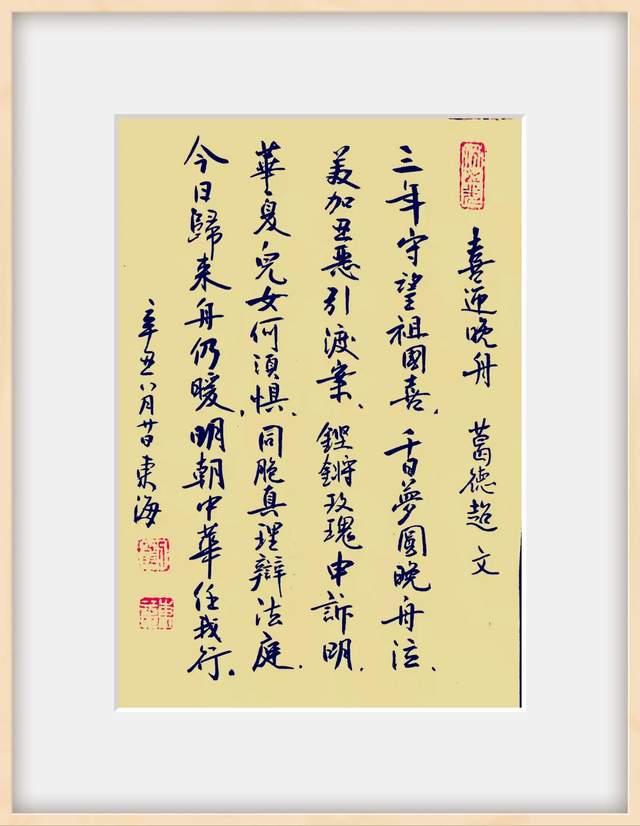 喜迎晚舟 葛德超 文
三年守望祖國喜，千日夢圓晚舟泣，
美加丑惡引渡案，鏗鏘玫瑰申訴明，
華夏兒女何須懼，同胞真理辯法庭．
今日歸來舟仍暖，明朝中華任我行。
辛丑八月廿日東海